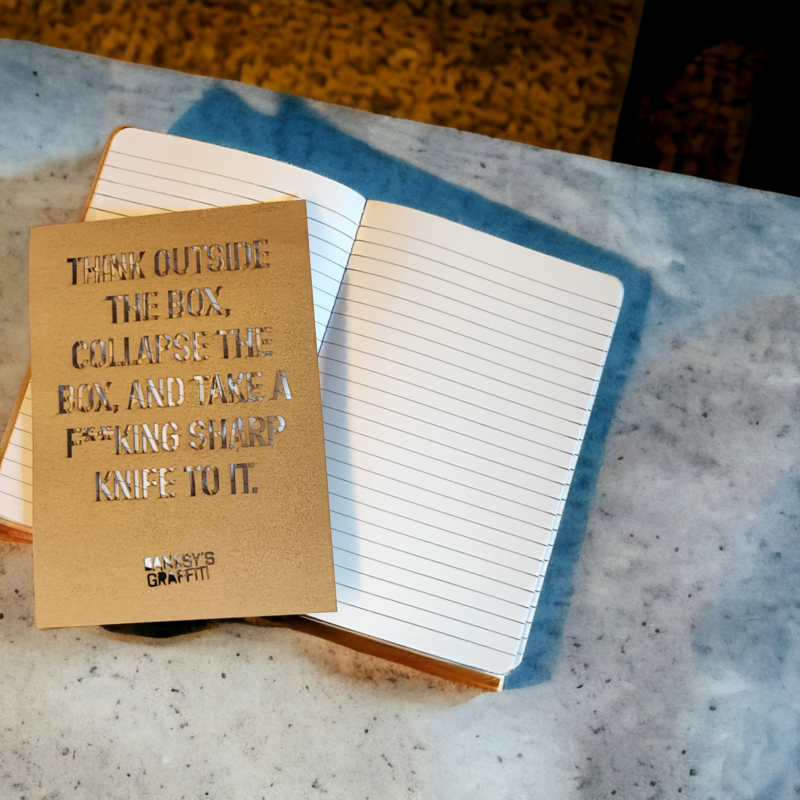 THINK OUTSIDE
THE BOX,
COLLAPSE THE
BOX, AND TAKE A
F**KING SHARP
KNIFE TO IT.
BANKSY'S
GRAFFITI